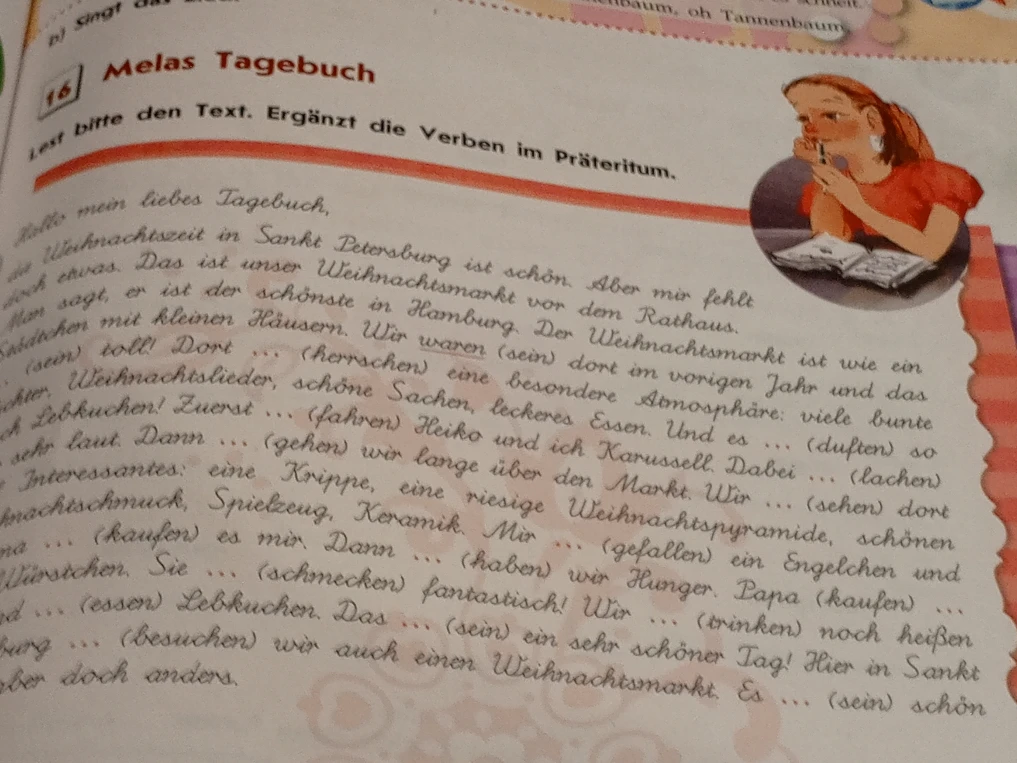 b) Singt das
oh Tannenbaum
16 Melas Tagebuch
Lest bitte den Text. Ergänzt die Verben im Präteritum.
Hallo mein liebes Tagebuch,
die Weihnachtszeit in Sankt Petersburg ist schön. Aber mir fehlt
doch etwas. Das ist unser Weihnachtsmarkt vor dem Rathaus.
Man sagt, er ist der schönste in Hamburg. Der Weihnachtsmarkt ist wie ein
Städtchen mit kleinen Häusern. Wir waren (sein) dort im vorigen Jahr und das
... (sein) toll! Dort ... (herrschen) eine besondere Atmosphäre: viele bunte
Weihnachtslieder, schöne Sachen, leckeres Essen. Und es ... (duften) so
Lebkuchen! Zuerst ... (fahren) Heiko und ich Karussell. Dabei ... (lachen)
sehr laut. Dann ... (gehen) wir lange über den Markt. Wir ... (sehen) dort
Interessantes: eine Krippe, eine riesige Weihnachtspyramide, schönen
Spielzeug, Keramik. Mir ... (gefallen) ein Engelchen und
... (kaufen) es mir. Dann ... (haben) wir Hunger. Papa (kaufen) ...
Würstchen. Sie ... (schmecken) fantastisch! Wir ... (trinken) noch heißen
... (essen) Lebkuchen. Das ... (sein) ein sehr schöner Tag! Hier in Sankt
... (besuchen) wir auch einen Weihnachtsmarkt. Es ... (sein) schön
aber doch anders.